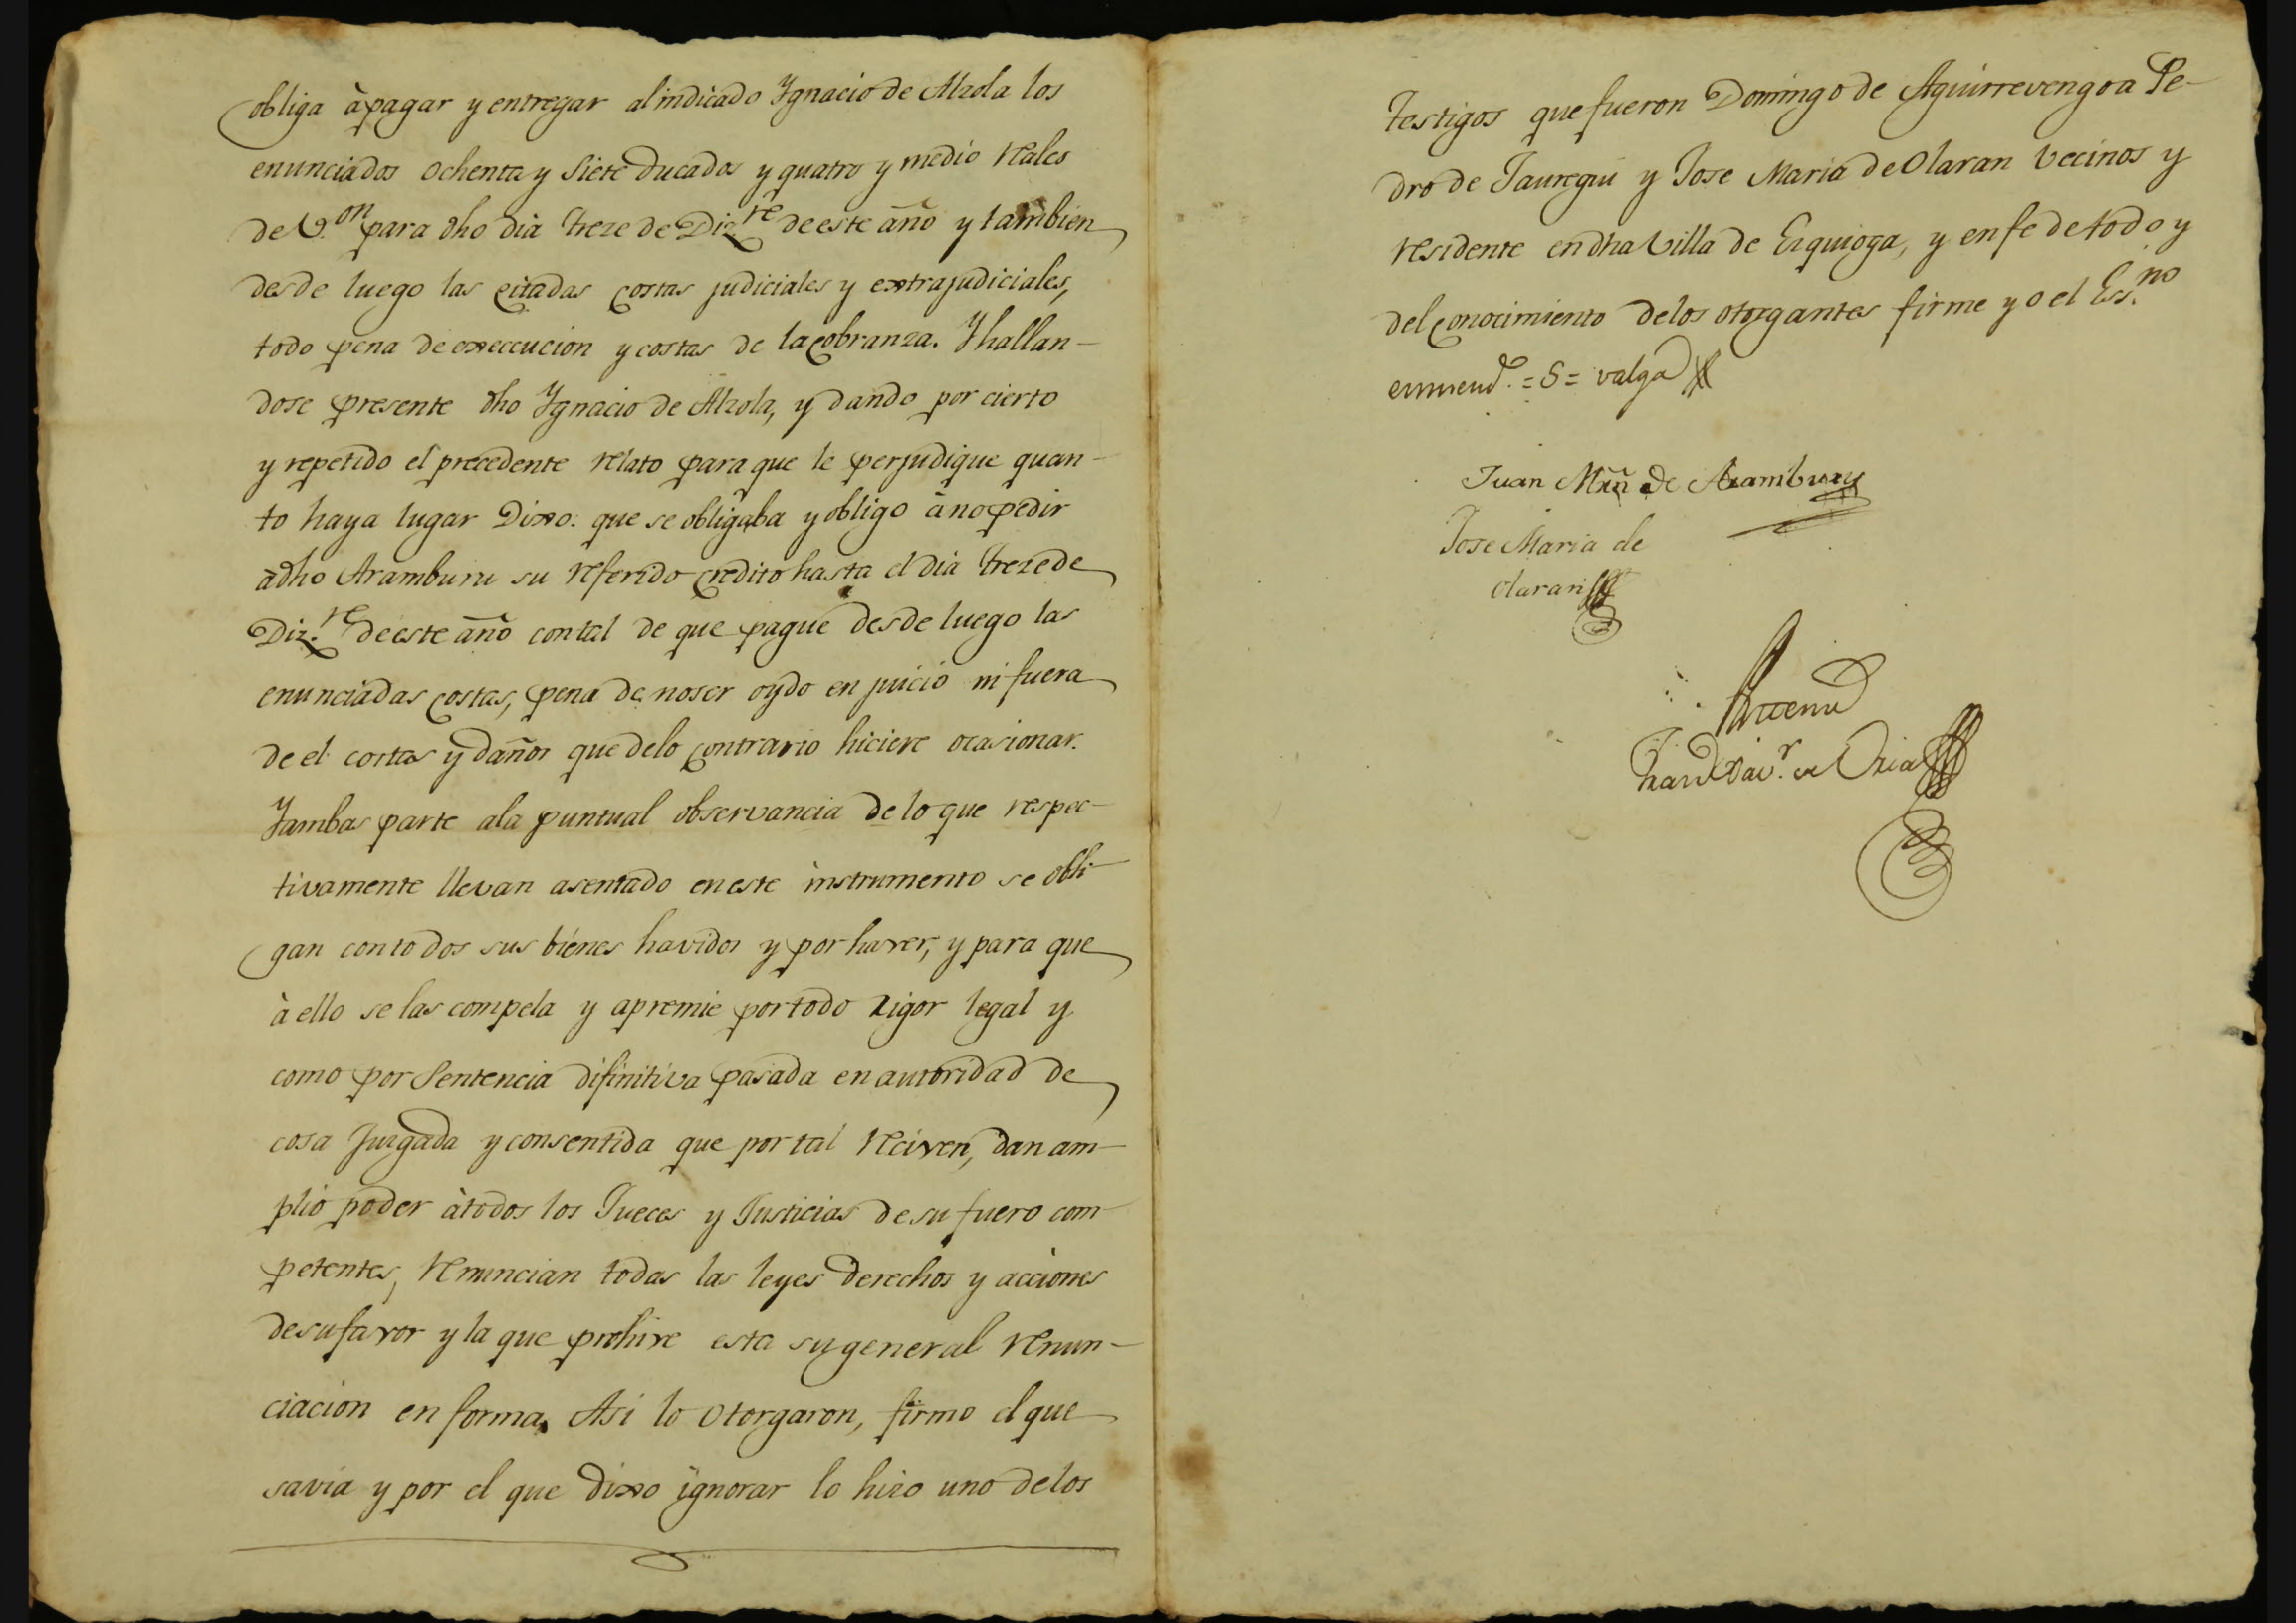 obliga à pagar y entregar al indicado Ygnacio de Alzola los
enunciados ochenta y Siete Ducados y quatro y medio reales
de V.on para dho dia treze de Diz.re de este año y tambien
desde luego las citadas costas judiciales y extrajudiciales,
todo pena de execcucion y costas de la cobranza. Y hallan-
dose presente dho Ygnacio de Alzola, y dando por cierto
y repetido el precedente relato para que le perjudique quan-
to haya lugar Dixo: que se obligaba y obligo à no pedir
à dho Aramburu su referido credito hasta el dia treze de
Diz.re de este año con tal de que pague desde luego las
enunciadas costas, pena de no ser oydo en juicio ni fuera
de el costas y daños que de lo contrario hiciere ocasionar.
Y ambas parte a la puntual observancia de lo que respec-
tivamente llevan asentado en este instrumento se obli-
gan con todos sus bienes havidos y por haver, y para que
à ello se las compela y apremie por todo rigor legal y
como por Sentencia difinitiva pasada en autoridad de
cosa Juzgada y consentida que por tal reciven, dan am-
plio poder à todos los Jueces y Justicias de su fuero com-
petentes, renuncian todas las leyes derechos y acciones
de su favor y la que prohive esta su general renun-
ciacion en forma. Asi lo otorgaron, firmo el que
savia y por el que dixo ignorar lo hizo uno de los
testigos que fueron Domingo de Aguirrevengoa Pe-
dro de Jauregui y Jose Maria de Olaran vecinos y
residente en dha Villa de Ezquioga, y en fe de todo y
del conocimiento de los otorgantes firme yo el Ess.no
enmend.do = S = valga
Juan Mrñ de Aramburu
Jose Maria de
Olaran
Ante mi
Fran.co Xav.r de Oria